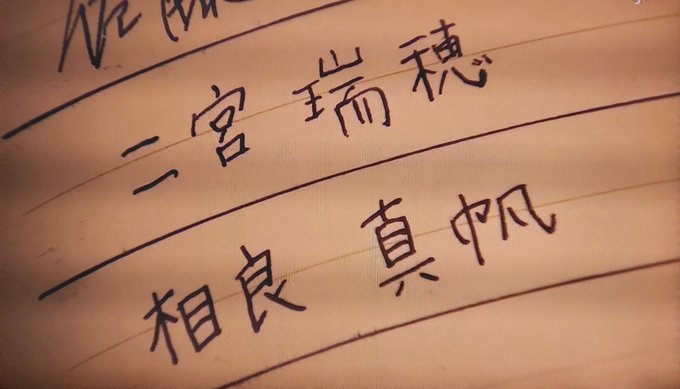 二宮 瑞穂
相良 真帆